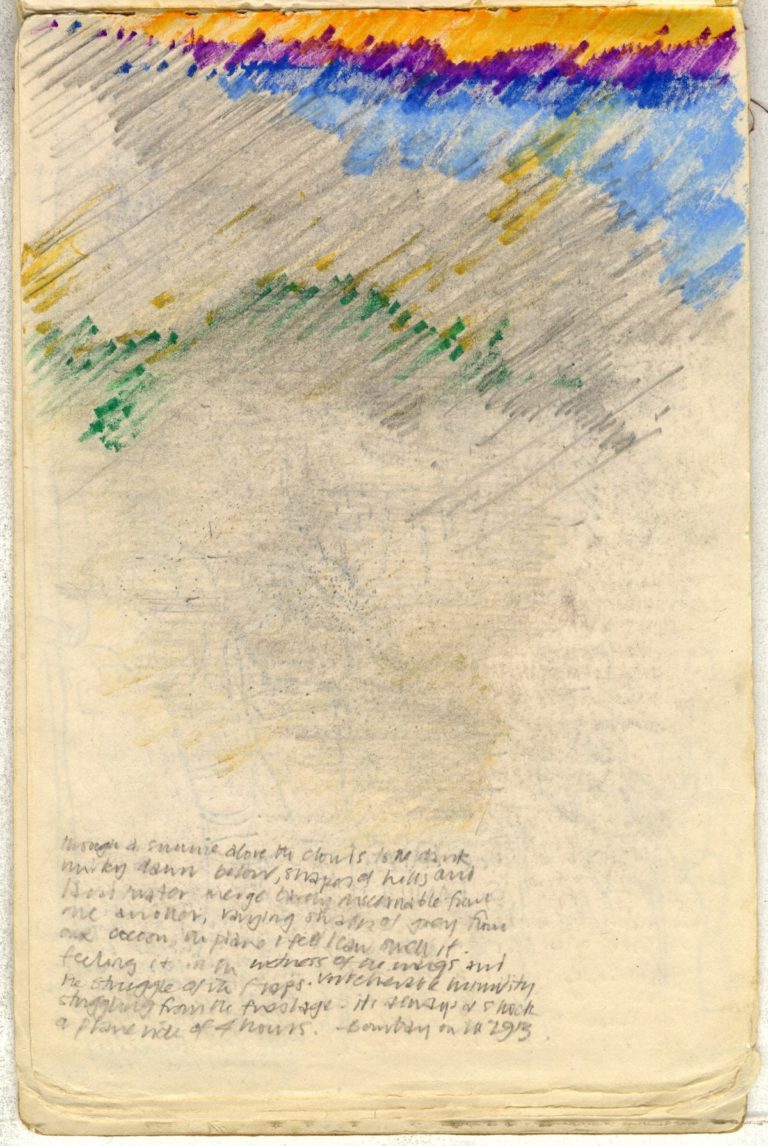 through a sunrise above the clouds to the dark
murky dawn below, shapes of hills and
water merge barely discernable from
one another, varying shades of grey from
our cocoon, the plane I feel I can smell it.
feeling it in the wetness of the wings and
the struggle of the flaps. humidity
struggling from the fuselage. its always a shock
a plane ride of 4 hours. - Bombay on